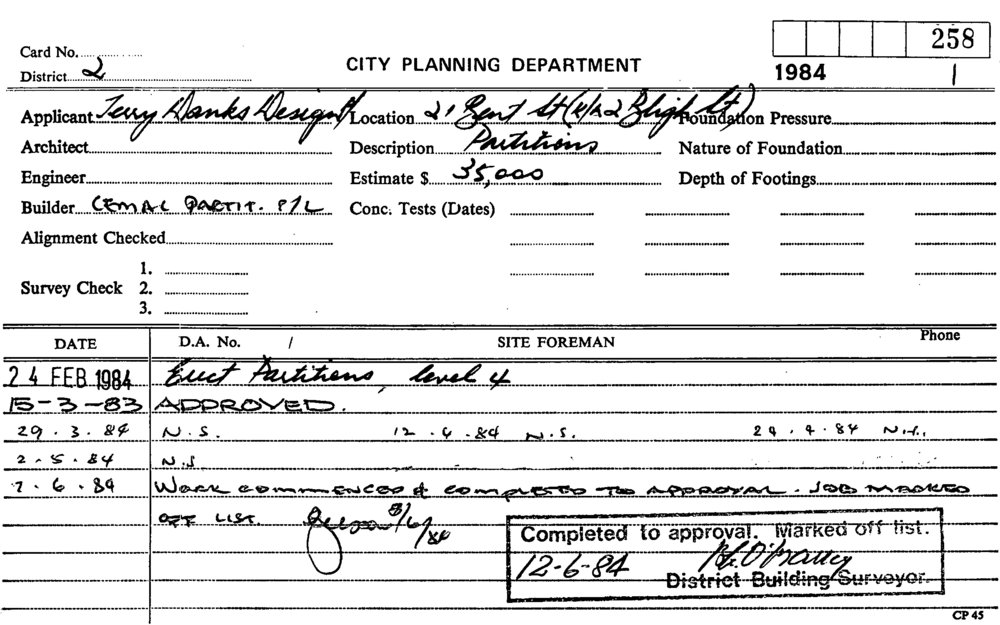 258
Card No.
District 2
CITY PLANNING DEPARTMENT
1984 /
Applicant Terry Danks Design Location 21 Bent St (K/A 2 Bligh St) Foundation Pressure
Architect Description Partitions Nature of Foundation
Engineer Estimate $ 35,000 Depth of Footings
Builder CEMAL PARTIT. P/L Conc. Tests (Dates)
Alignment Checked
1.
Survey Check 2.
3.
DATE D.A. No. / SITE FOREMAN Phone
24 FEB 1984 Erect Partitions, level 4
15-3-83 APPROVED.
29.3.84 N.S. 12.4.84 N.S. 24.4.84 N.S.
2.5.84 N.S
7.6.84 WORK COMMENCED & COMPLETED TO APPROVAL. JOB MARKED
OFF LIST. 8/6/84
Completed to approval. Marked off list.
12-6-84
District Building Surveyor.
CP 45